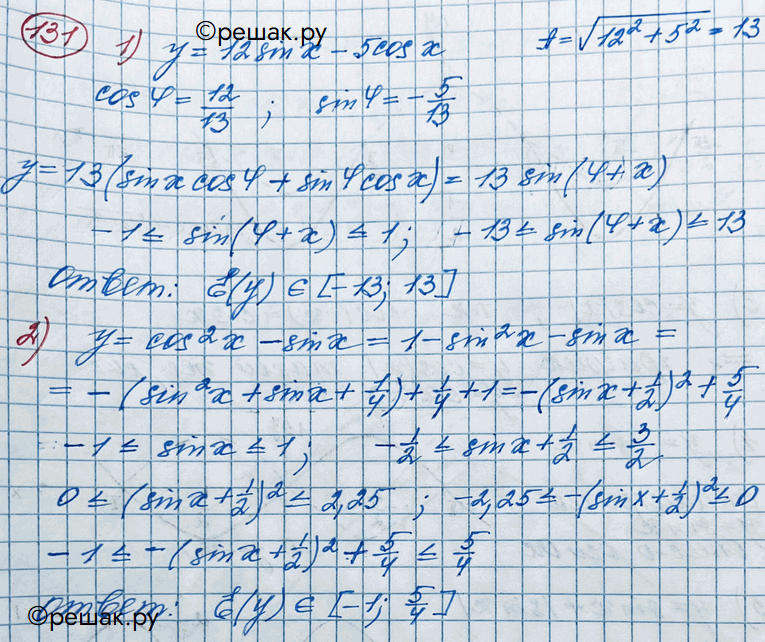 ©решак.ру
131 1) y = 12 sin x - 5 cos x    A = √(12² + 5²) = 13
cos φ = 12/13 ; sin φ = - 5/13
y = 13 (sin x cos φ + sin φ cos x) = 13 sin (φ + x)
-1 ≤ sin (φ + x) ≤ 1 ; -13 ≤ sin (φ + x) ≤ 13
Ответ: E(y) ∈ [-13; 13]
2) y = cos² x - sin x = 1 - sin² x - sin x =
= - (sin² x + sin x + 1/4) + 1/4 + 1 = - (sin x + 1/2)² + 5/4
-1 ≤ sin x ≤ 1 ; - 1/2 ≤ sin x + 1/2 ≤ 3/2
0 ≤ (sin x + 1/2)² ≤ 2,25 ; -2,25 ≤ - (sin x + 1/2)² ≤ 0
-1 ≤ - (sin x + 1/2)² + 5/4 ≤ 5/4
Ответ: E(y) ∈ [-1; 5/4]
©решак.ру